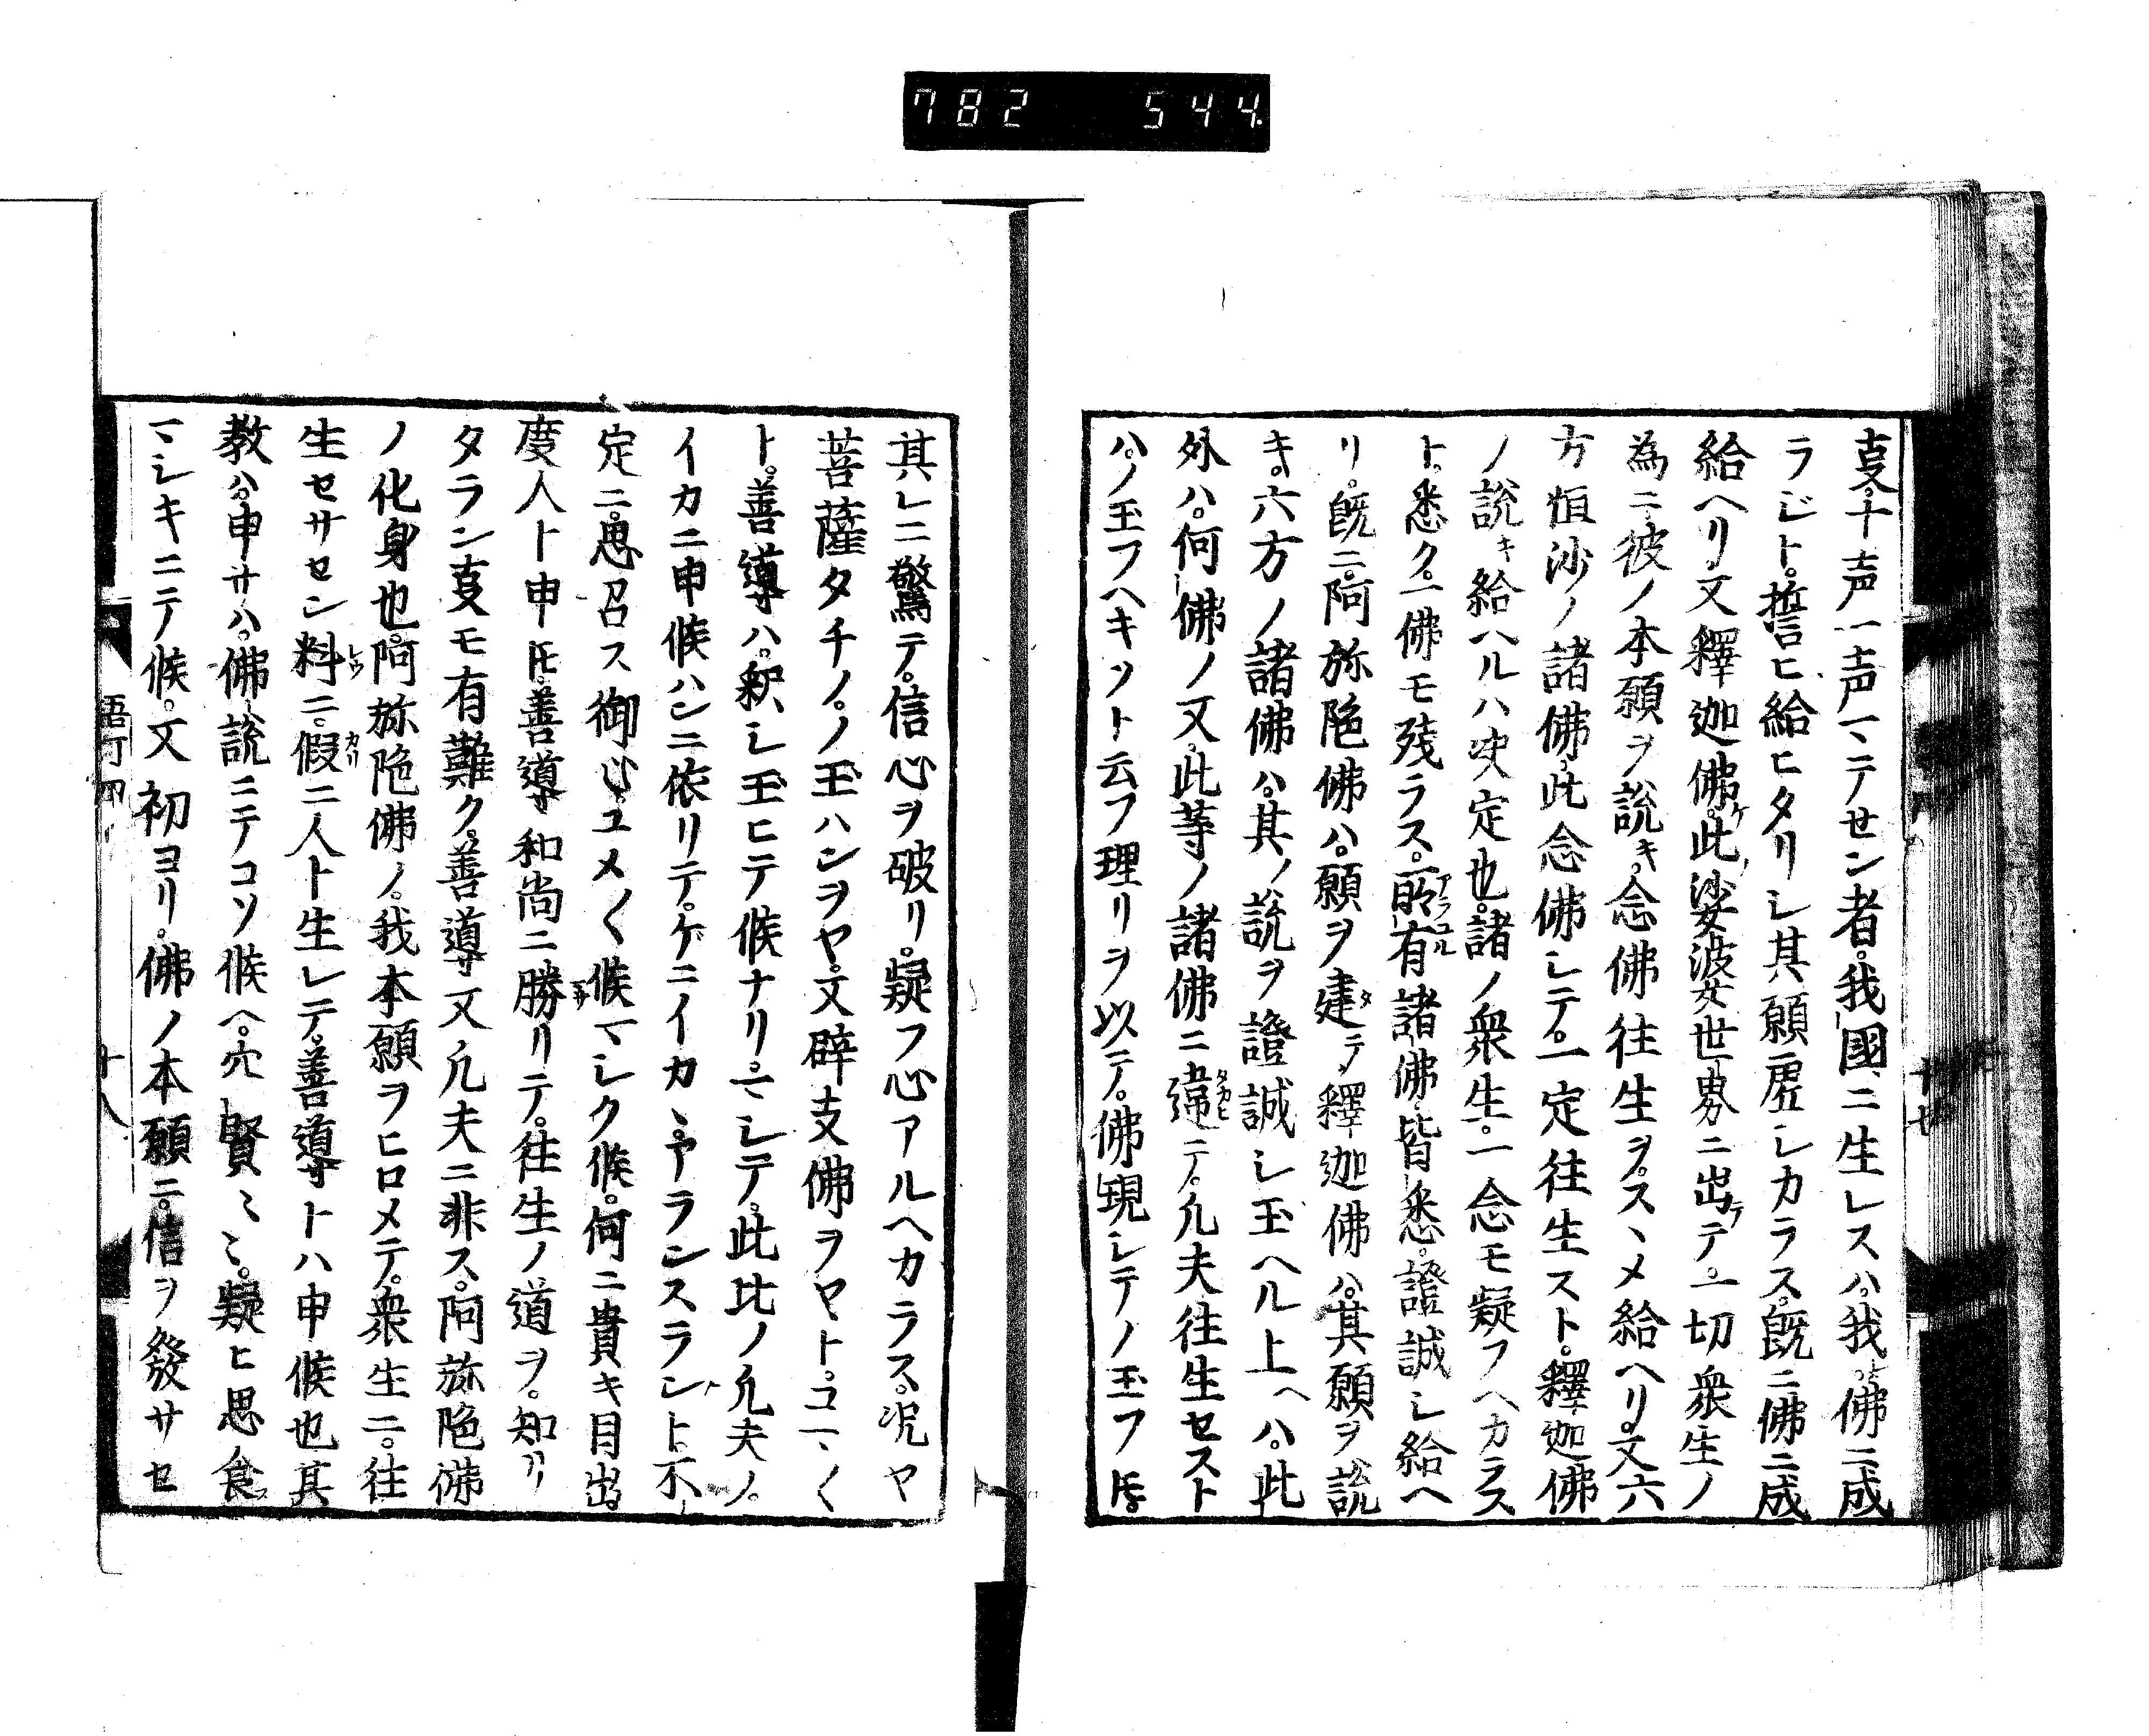 782 544
㕝。十声一声マテセン者。我國ニ生レスハ。我。佛ニ成
ラジト。誓ヒ給ヒタリシ其願虚シカラス。既ニ佛ニ成
給ヘリ。又釋迦佛。此ノ娑婆世界ニ出テ。一切衆生ノ
為ニ彼ノ本願ヲ説キ。念佛往生ヲ。スヽメ給ヘリ。又六
方恒沙ノ諸佛。此念佛シテ。一定往生スト。釋迦佛
ノ説キ給ヘルハ决定也。諸ノ衆生。一念モ疑フヘカラス
ト。悉ク。一佛モ残ラス。所有アラユル諸佛。皆悉。證誠シ給ヘ
リ。既ニ。阿弥陁佛ハ。願ヲ建タテ釋迦佛ハ。其願ヲ説
キ。六方ノ諸佛ハ。其ノ説ヲ證誠シ玉ヘル上ヘハ。此
外ハ。何佛ノ又。此等ノ諸佛ニ違タカヒテ。凡夫往生セスト
ハ。ノ玉フヘキソト云フ理リヲ以テ。佛現シテノ玉フ𪜈。
其レニ驚テ。信心ヲ破リ。疑フ心アルヘカラス。况ヤ
菩薩タチノ。ノ玉ハンヲヤ。又辟支佛ヲヤト。コマ〱
ト。善導ハ。釈シ玉ヒテ候ナリ。マシテ。此比ノ凡夫ノ。
イカニ申候ハンニ依リテ。ゲニイカヽ。ヤランスラント。不
定ニ。思召ス御心。ユメ〱候マシク候。何ニ貴キ目出
度人ト申𪜈。善導和尚ニ勝マサリテ。往生ノ道ヲ。知リ
タラン㕝モ有難ク。善導又凡夫ニ非ス。阿弥陁佛
ノ化身也。阿弥陁佛ノ。我本願ヲヒロメテ。衆生ニ。往
生セサセン料レウニ。假カリニ人ト生レテ。善導トハ申候也其
教ハ。申サハ。佛説ニテコソ候ヘ。穴賢ミヽ。疑ヒ思食
マシキニテ候。又初ヨリ。佛ノ本願ニ。信ヲ發サセ
十八